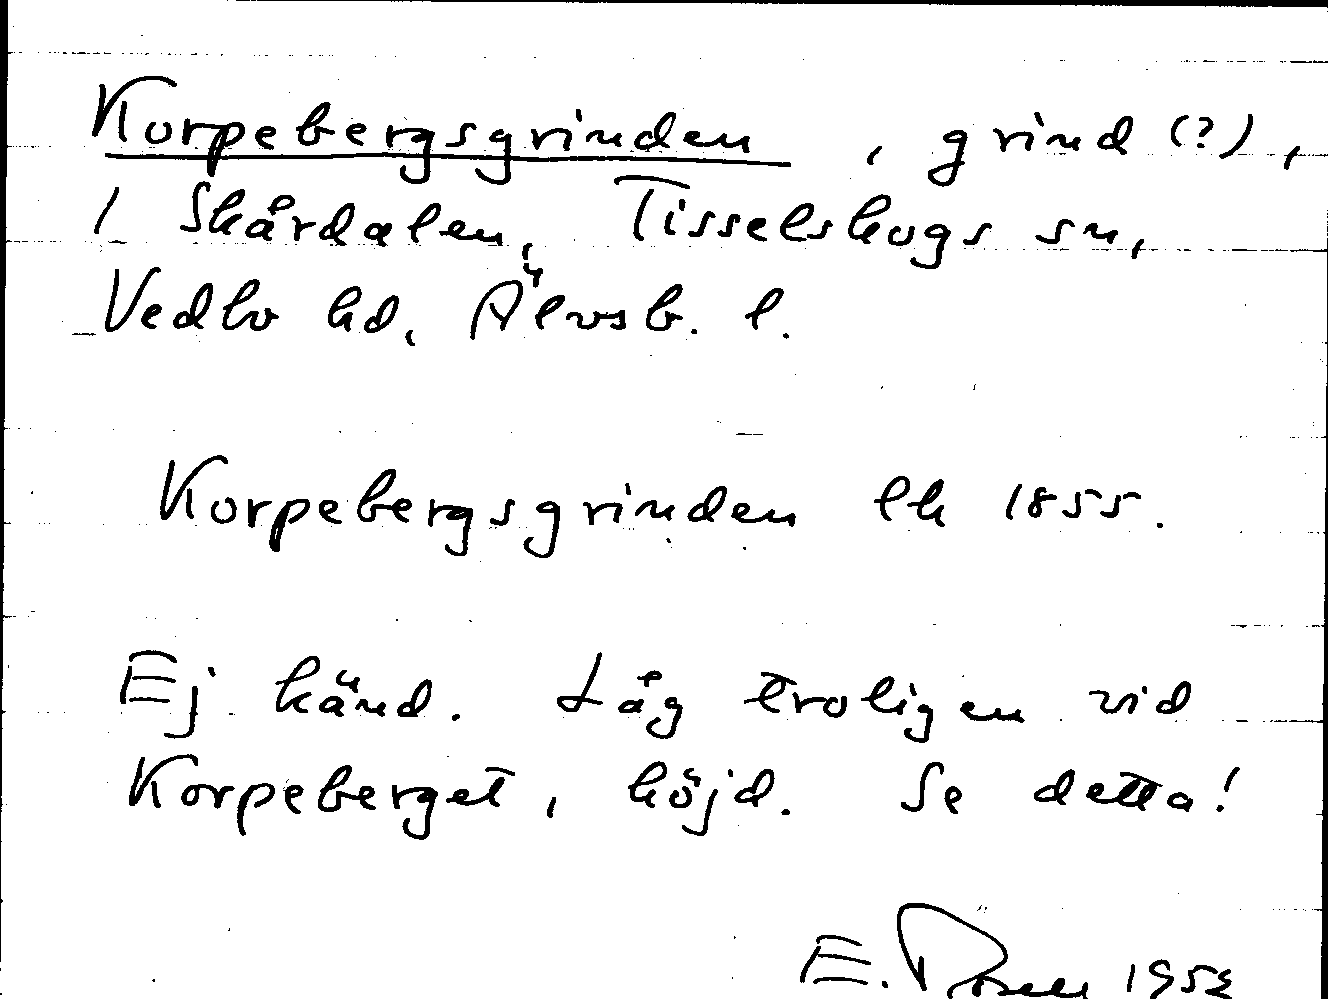 Korpebergsgrinden, grind (?),
1 Skårdalen, Tisselskogs sn,
Vedbo hd, Älvsb. l.
Korpebergsgrinden lk 1855.
Ej känd. Låg troligen vid
Korpeberget, höjd. Se detta!
E.